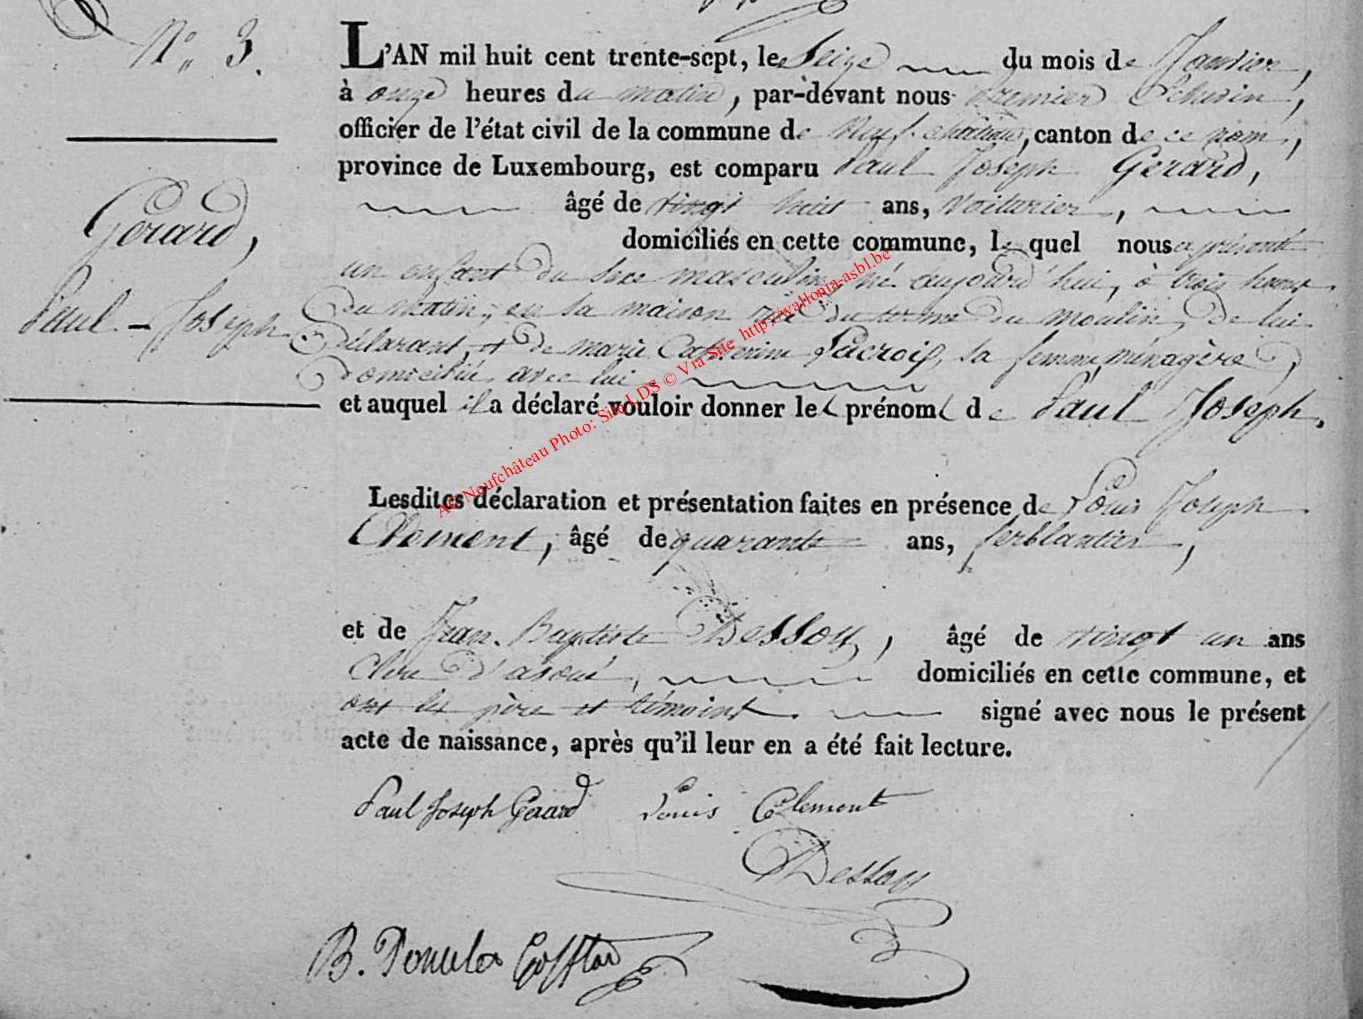 N° 3.
L'AN mil huit cent trente-sept, le seize du mois de Janvier,
à onze heures du matin, par-devant nous premier Echevin,
officier de l'état civil de la commune de Neufchâteau, canton de ce nom,
province de Luxembourg, est comparu Paul Joseph Gérard,
âgé de vingt huit ans, voiturier,
domiciliés en cette commune, lequel nous a présenté
un enfant du sexe masculin, né aujourd'hui, à trois heures
du matin, en sa maison rue du terme du moulin, de lui
déclarant, et de marie Catherine Lacroix, sa femme, menagère,
domiciliée avec lui
et auquel il a déclaré vouloir donner les prénoms de Paul Joseph.
Gérard,
Paul-Joseph
Lesdites déclaration et présentation faites en présence de Louis Joseph
Clement, âgé de quarante ans, ferblantier,
et de Jean Baptiste Dessoy, âgé de vingt un ans
clerc d'avoué, domiciliés en cette commune, et
ont les père et témoins signé avec nous le présent
acte de naissance, après qu'il leur en a été fait lecture.
Paul Joseph Gerard Louis Clement
Dessoy
B.
Neufchâteau Photo: Site LDS © Via Site http://wallonia-asbl.be